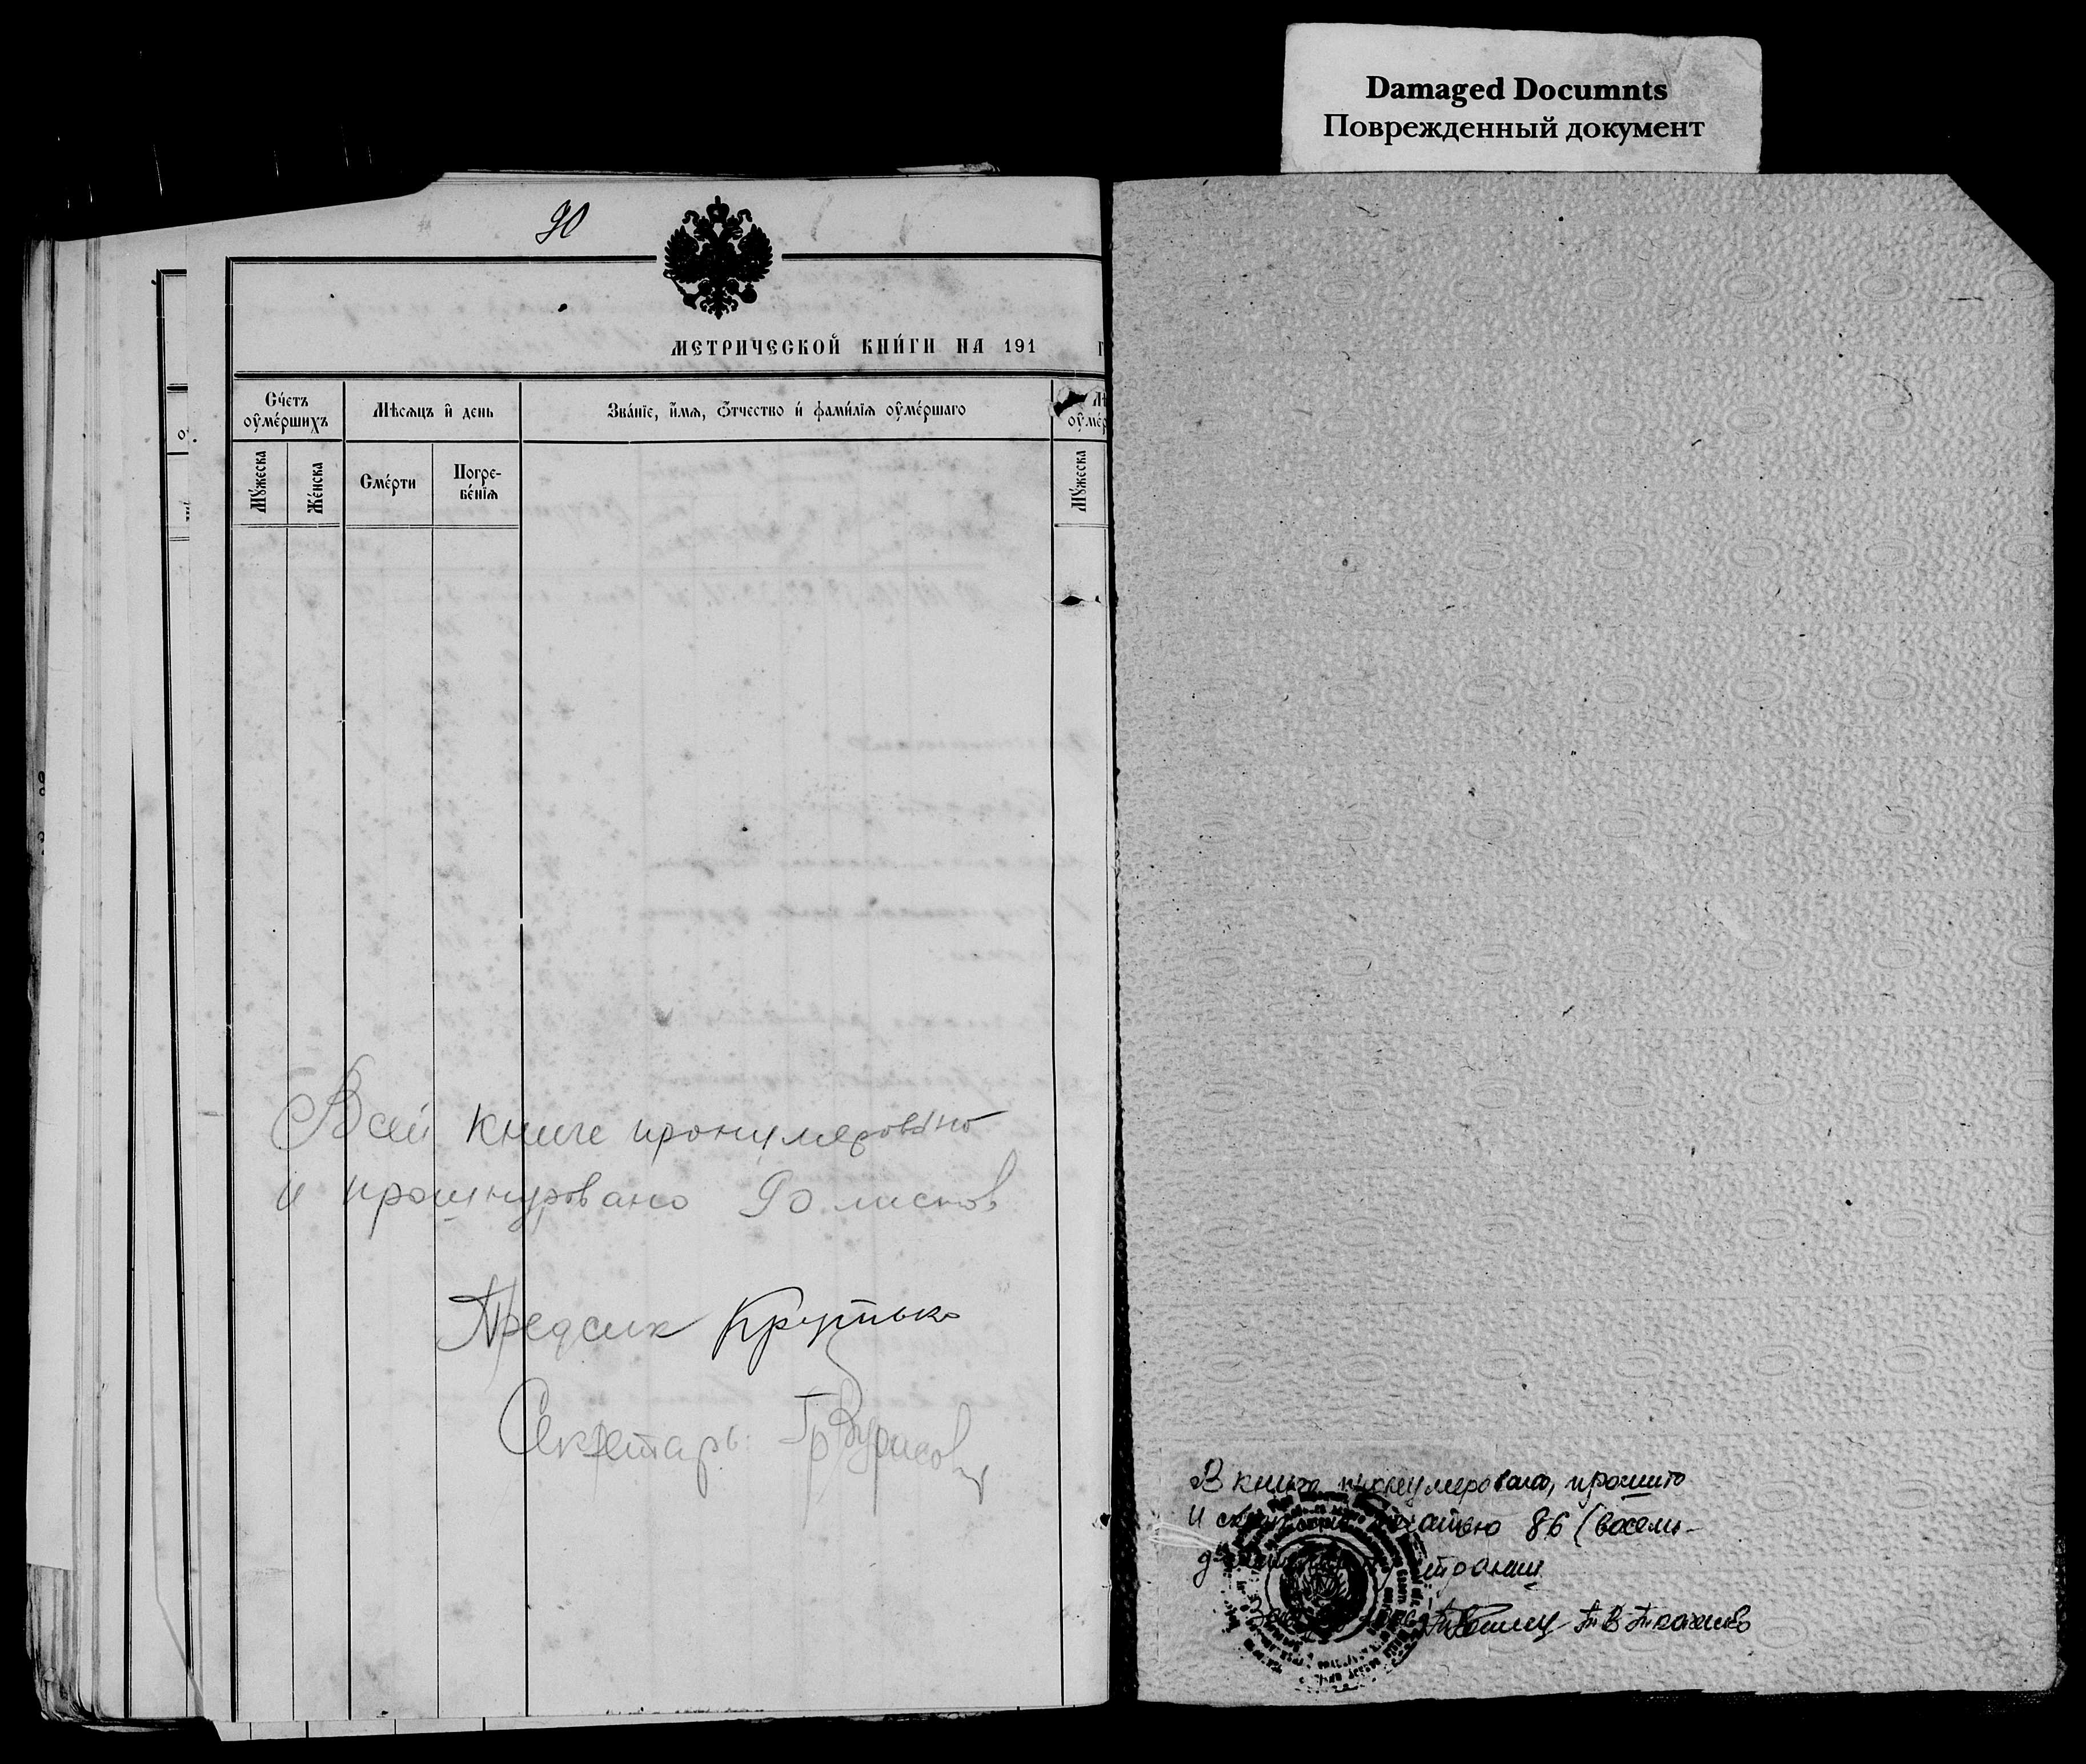 Damaged Documnts
Поврежденный документ
90
МЕТРИЧЕСКОЙ КНИ́ГИ НА 191 г
Сче́тъ оу҆ме́ршихъ
Мѣсяцъ и҆ день
Зва́нїе, и҆́мя, ѻ҆́тчество и҆ фами́лїя оу҆ме́ршаго
Му́жеска
Же́нска
Сме́рти
Погре-
бе́нїя
Му́жеска
Всей книге пронумеровано
и прошнуровано 90 листов
Предсик Крутько
Секретарь
В книге пронумеровано, прошито
и печатью 86 (восемь-
страниц